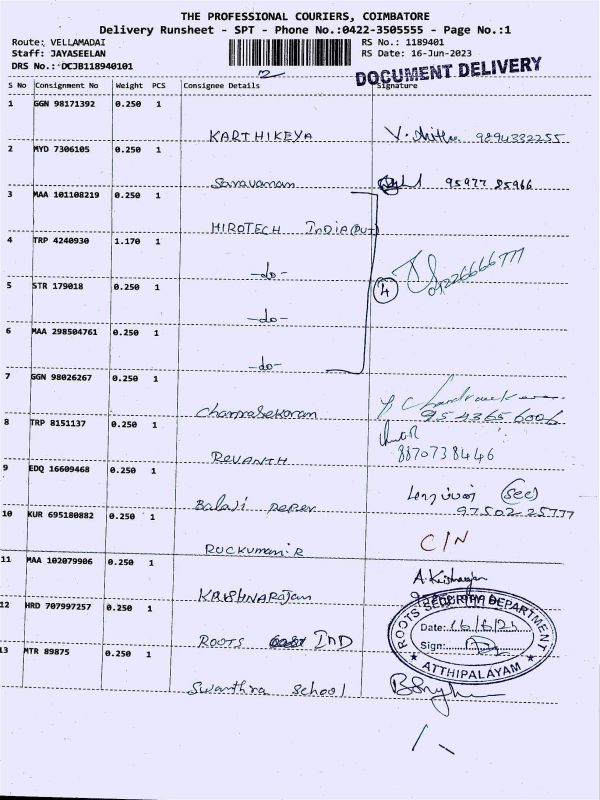 THE PROFESSIONAL COURIERS, COIMBATORE
Delivery Runsheet - SPT - Phone No.:0422-3505555 - Page No.:1
Route: VELLAMADAI RS No.: 1189401
Staff: JAYASEELAN RS Date: 16-Jun-2023
DRS No.: DCJB118940101
2 DOCUMENT DELIVERY
S No Consignment No Weight PCS Consignee Details Signature
1 GGN 98171392 0.250 1
KARTHIKEYA 9894332255
2 MYD 7306105 0.250 1
Saravanan 95977 85966
3 MAA 101108219 0.250 1
HIROTECH INDIA (PVT)
4 TRP 4240930 1.170 1
-do-
5 STR 179018 0.250 1
4
-do-
6 MAA 298504761 0.250 1
-do-
7 GGN 98026267 0.250 1
Chanrasekaram 9543656006
8 TRP 8151137 0.250 1
REVANTH 8870738446
9 EDQ 16609468 0.250 1
Balaji paper (Sec) 97502 25777
10 KUR 695180882 0.250 1
RUCKUMANI R C/N
11 MAA 102079906 0.250 1
KRISHNARAJAM
12 HRD 707997257 0.250 1
ROOTS IND
ROOTS SECURITY DEPARTMENT
Date: 16/6/23
Sign:
ATTHIPALAYAM
13 MTR 89875 0.250 1
Swanthra school